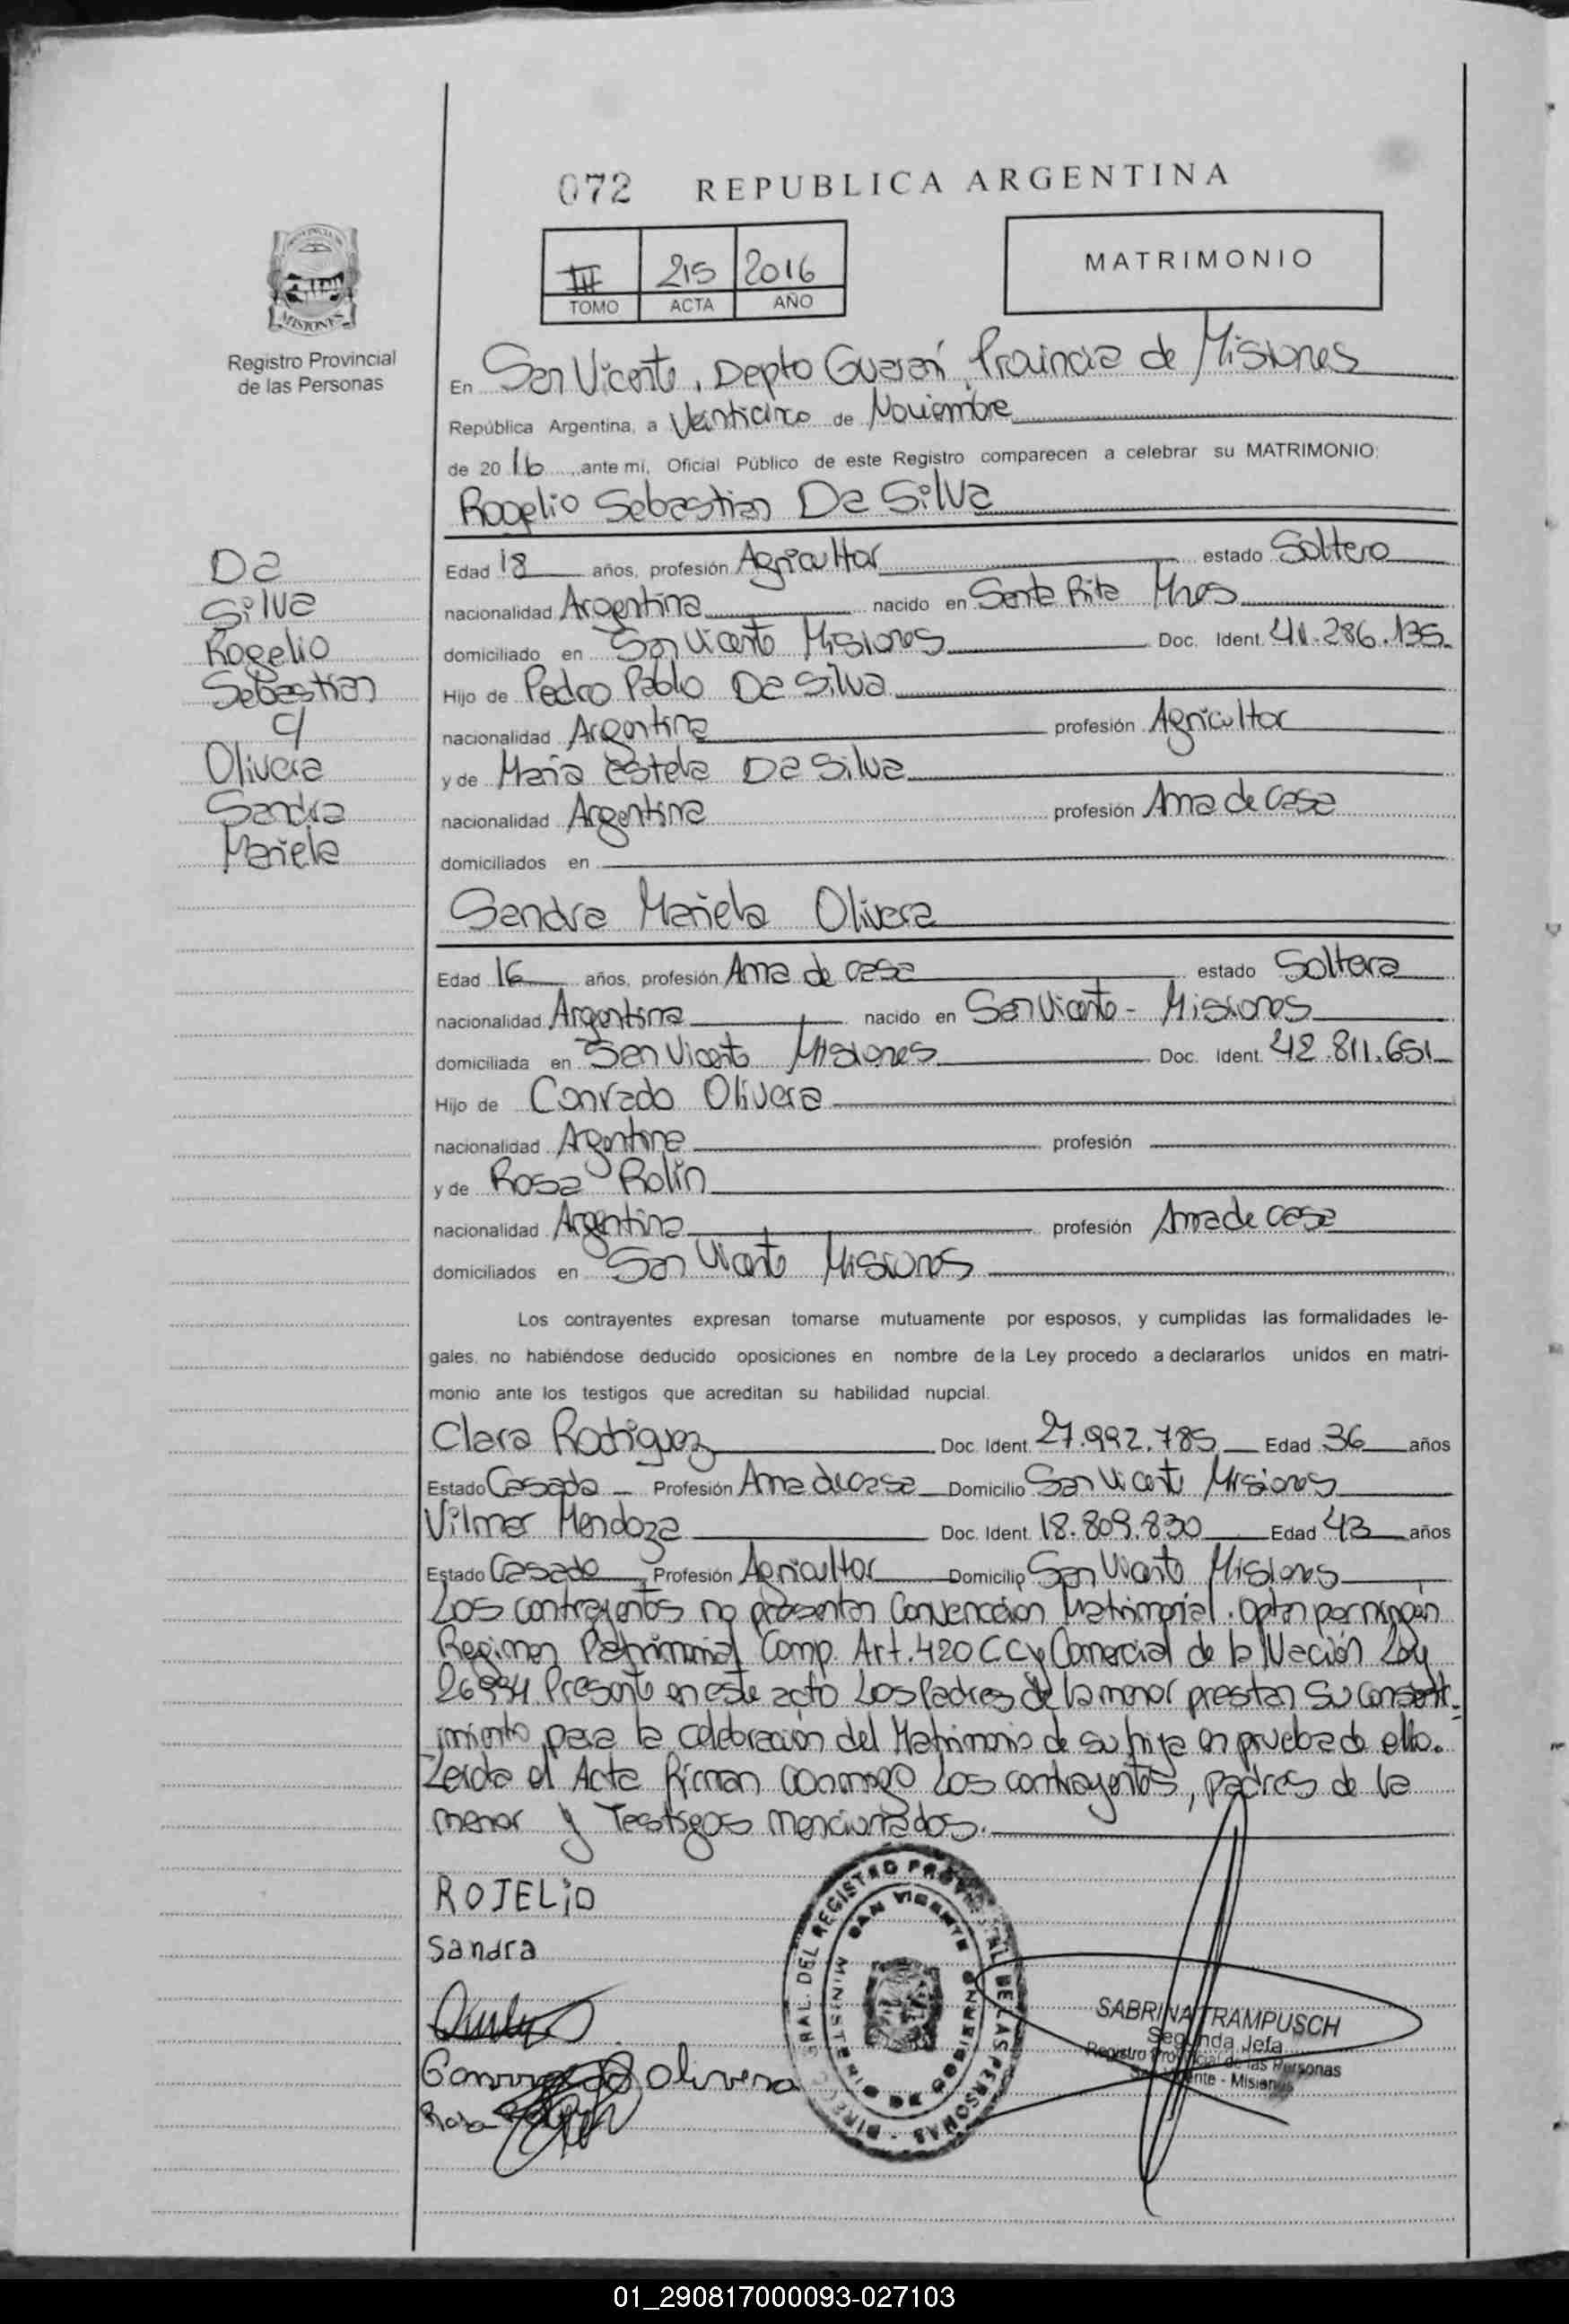 072 REPUBLICA ARGENTINA
III 215 2016
TOMO ACTA AÑO
MATRIMONIO
MISIONES
Registro Provincial
de las Personas
En San Vicente, Depto Guaraní, Provincia de Misiones
República Argentina, a Veinticinco de Noviembre
de 20 16 ante mi, Oficial Público de este Registro comparecen a celebrar su MATRIMONIO:
Rogelio Sebastian Da Silva
Da
Silva
Rogelio
Sebastian
c/
Olivera
Sandra
Mariela
Edad 18 años, profesión Agricultor estado Soltero
nacionalidad Argentina nacido en Santa Rita Mnes
domiciliado en San Vicente Misiones Doc. Ident. 41.286.135
Hijo de Pedro Pablo Da Silva
nacionalidad Argentina profesión Agricultor
y de Maria Estela Da Silva
nacionalidad Argentina profesión Ama de Casa
domiciliados en
Sandra Mariela Olivera
Edad 16 años, profesión Ama de casa estado Soltera
nacionalidad Argentina nacido en San Vicente - Misiones
domiciliada en San Vicente Misiones Doc. Ident. 42.811.651
Hijo de Conrado Olivera
nacionalidad Argentina profesión
y de Rosa Rolin
nacionalidad Argentina profesión Ama de casa
domiciliados en San Vicente Misiones
Los contrayentes expresan tomarse mutuamente por esposos, y cumplidas las formalidades le-
gales, no habiéndose deducido oposiciones en nombre de la Ley procedo a declararlos unidos en matri-
monio ante los testigos que acreditan su habilidad nupcial.
Clara Rodriguez Doc. Ident. 27.992.785 Edad 36 años
Estado Casada Profesión Ama de casa Domicilio San Vicente Misiones
Vilmar Mendoza Doc. Ident. 18.809.830 Edad 43 años
Estado Casado Profesión Agricultor Domicilio San Vicente Misiones
Los contrayentes no presentan Convencion Matrimonial. Optan por ningún
Regimen Patrimonial Comp. Art. 420 CC y Comercial de la Nación Ley
26994 Presente en este acto Los Padres de la menor prestan su consenti-
miento para la celebración del Matrimonio de su hija en prueba de ello.
Leida el Acta Firman conmigo los contrayentes, padres de la
menor y Testigos mencionados.
ROJELiO
Sandra
Olivera
Rosa
DIREC. GRAL. DEL REGISTRO PROVINCIAL DE LAS PERSONAS
SAN VICENTE
MINISTERIO DE GOBIERNO
SABRINA TRAMPUSCH
Segunda Jefa
Registro Provincial de las Personas
San Vicente - Misiones
01_290817000093-027103